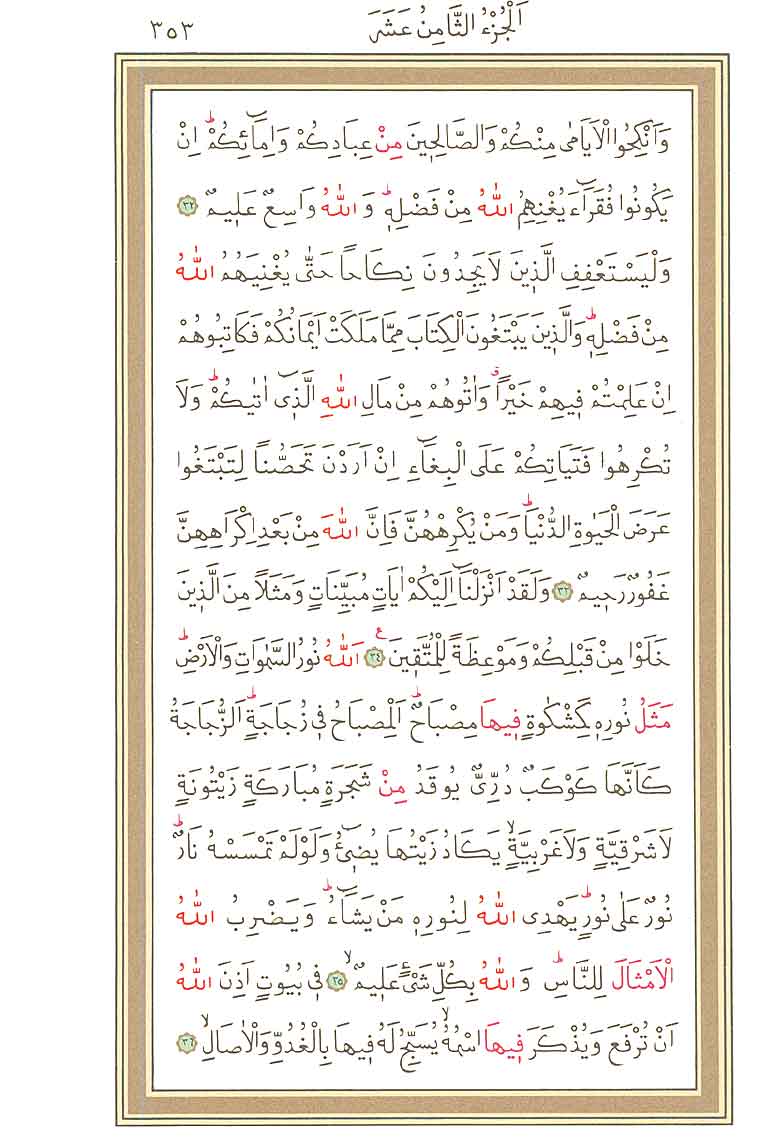 اَلْجُزْءُ الثَّامِنُ عَشَرَ ٣٥٣
وَاَنْكِحُوا الْاَيَامٰى مِنْكُمْ وَالصَّالِح۪ينَ مِنْ عِبَادِكُمْ وَاِمَٓائِكُمْۜ اِنْ
يَكُونُوا فُقَرَٓاءَ يُغْنِهِمُ اللّٰهُ مِنْ فَضْلِه۪ۜ وَاللّٰهُ وَاسِعٌ عَل۪يمٌ ﴿٣٢﴾
وَلْيَسْتَعْفِفِ الَّذ۪ينَ لَا يَجِدُونَ نِكَاحًا حَتّٰى يُغْنِيَهُمُ اللّٰهُ
مِنْ فَضْلِه۪ۜ وَالَّذ۪ينَ يَبْتَغُونَ الْكِتَابَ مِمَّا مَلَكَتْ اَيْمَانُكُمْ فَكَاتِبُوهُمْ
اِنْ عَلِمْتُمْ ف۪يهِمْ خَيْرًاۗ وَاٰتُوهُمْ مِنْ مَالِ اللّٰهِ الَّذ۪ٓي اٰتٰيكُمْۜ وَلَا
تُكْرِهُوا فَتَيَاتِكُمْ عَلَى الْبِغَٓاءِ اِنْ اَرَدْنَ تَحَصُّنًا لِتَبْتَغُوا
عَرَضَ الْحَيٰوةِ الدُّنْيَاۜ وَمَنْ يُكْرِهْهُنَّ فَاِنَّ اللّٰهَ مِنْ بَعْدِ اِكْرَاهِهِنَّ
غَفُورٌ رَح۪يمٌ ﴿٣٣﴾ وَلَقَدْ اَنْزَلْنَٓا اِلَيْكُمْ اٰيَاتٍ مُبَيِّنَاتٍ وَمَثَلًا مِنَ الَّذ۪ينَ
خَلَوْا مِنْ قَبْلِكُمْ وَمَوْعِظَةً لِلْمُتَّق۪ينَ ﴿٣٤﴾ اَللّٰهُ نُورُ السَّمٰوَاتِ وَالْاَرْضِۜ
مَثَلُ نُورِه۪ كَمِشْكٰوةٍ ف۪يهَا مِصْبَاحٌۜ اَلْمِصْبَاحُ ف۪ي زُجَاجَةٍۜ اَلزُّجَاجَةُ
كَاَنَّهَا كَوْكَبٌ دُرِّيٌّ يُوقَدُ مِنْ شَجَرَةٍ مُبَارَكَةٍ زَيْتُونَةٍ
لَا شَرْقِيَّةٍ وَلَا غَرْبِيَّةٍۙ يَكَادُ زَيْتُهَا يُض۪ٓيءُ وَلَوْ لَمْ تَمْسَسْهُ نَارٌۜ
نُورٌ عَلٰى نُورٍۜ يَهْدِي اللّٰهُ لِنُورِه۪ مَنْ يَشَٓاءُۜ وَيَضْرِبُ اللّٰهُ
الْاَمْثَالَ لِلنَّاسِۜ وَاللّٰهُ بِكُلِّ شَيْءٍ عَل۪يمٌۙ ﴿٣٥﴾ ف۪ي بُيُوتٍ اَذِنَ اللّٰهُ
اَنْ تُرْفَعَ وَيُذْكَرَ ف۪يهَا اسْمُهُۙ يُسَبِّحُ لَهُ ف۪يهَا بِالْغُدُوِّ وَالْاٰصَالِۙ ﴿٣٦﴾